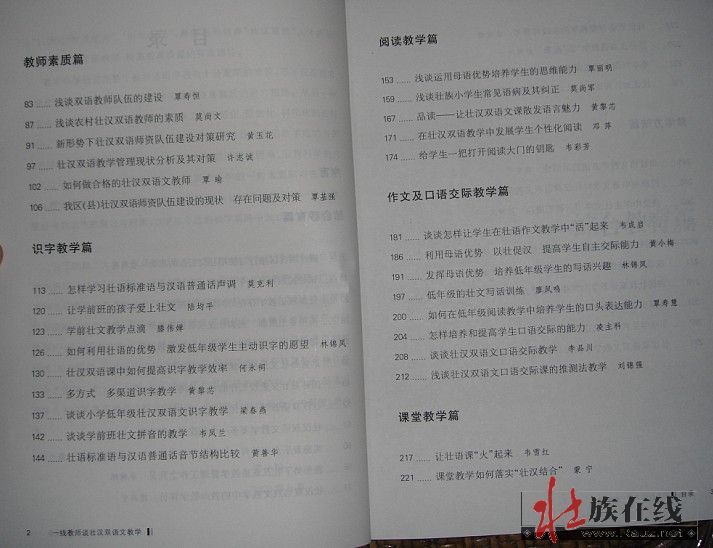 教师素质篇
83……浅谈双语教师队伍的建设 覃寿恒
87……浅谈农村壮汉双语教师的素质 莫尚文
91……新形势下壮汉双语师资队伍建设对策研究 黄玉花
97……壮汉双语教学管理现状分析及其对策 许志诚
102……如何做合格的壮汉双语文教师 覃瑜
106……我区(县)壮汉双语师资队伍建设的现状 存在问题及对策 覃基强
识字教学篇
113……怎样学习壮语标准语与汉语普通话声调 莫克利
120……让学前班的孩子爱上壮文 陆均平
123……学前壮文教学点滴 滕伟婵
126……如何利用壮语的优势 激发低年级学生主动识字的愿望 林锦凤
130……壮汉双语课中如何提高识字教学效率 何永祠
133……多方式 多渠道识字教学 黄黎芯
137……谈谈小学低年级壮汉双语文识字教学 梁春燕
142……谈谈学前班壮文拼音的教学 韦凤兰
144……壮语标准语与汉语普通话音节结构比较 黄善华
2 一线教师谈壮汉双语文教学
阅读教学篇
153……浅谈运用母语优势培养学生的思维能力 覃丽明
159……浅谈壮族小学生常见语病及其纠正 莫尚军
167……品读——让壮汉双语文课散发语言魅力 黄黎芯
171……在壮汉双语教学中发展学生个性化阅读 邓萍
174……给学生一把打开阅读大门的钥匙 韦彩芳
作文及口语交际教学篇
181……谈谈怎样让学生在壮语作文教学中“活”起来 韦成启
186……利用母语优势 以壮促汉 提高学生自主交际能力 黄小梅
191……发挥母语优势 培养低年级学生的写话兴趣 林锦凤
197……低年级的壮文写话训练 廖凤鸣
200……如何在低年级阅读教学中培养学生的口头表达能力 覃寿慧
204……怎样培养和提高学生口语交际的能力 凌主科
208……谈谈壮汉双语文口语交际教学 李品川
212……浅谈壮汉双语文口语交际课的推测法教学 刘锦强
课堂教学篇
217……让壮语课“火”起来 韦雪红
221……课堂教学如何落实“壮汉结合” 蒙宁
目录
壮族在线
www.rauz.net.cn